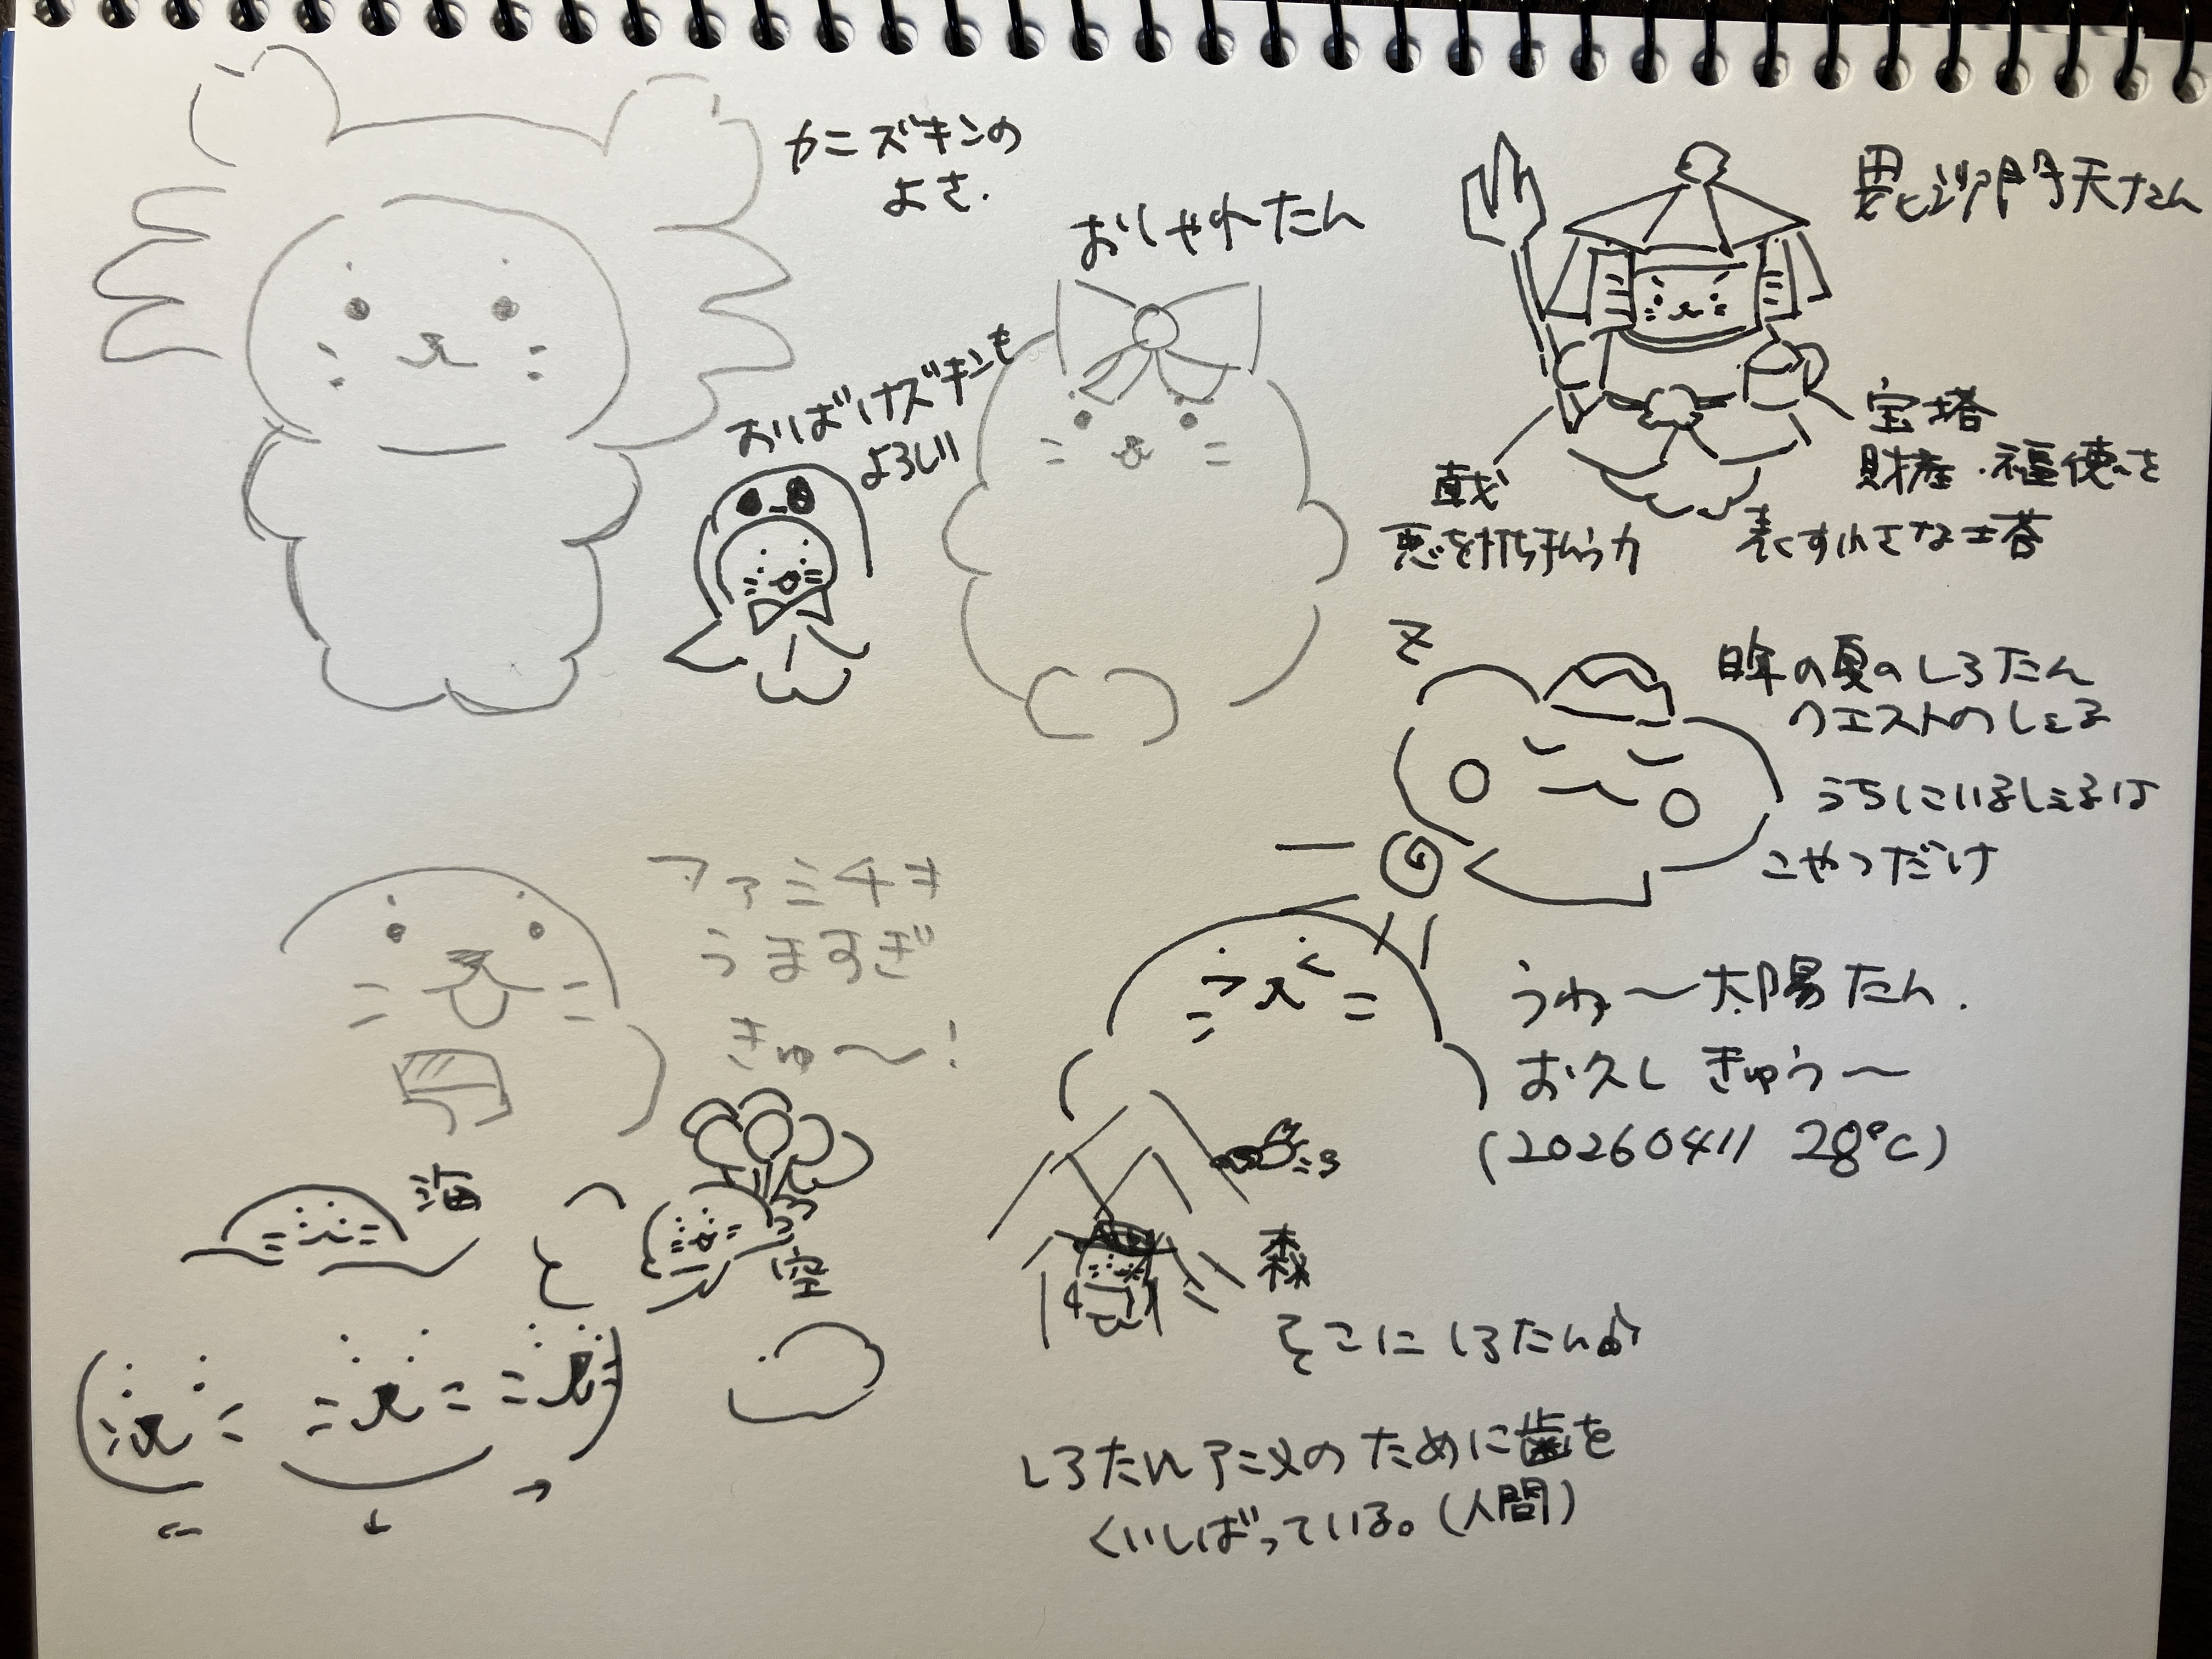 カニズキンの
よさ.
おしゃれたん
おばけズキンも
よろしい
毘沙門天たん
宝塔
財産・福徳を
表す小さな塔
戟
悪を打ち払う力
z
昨年の夏のしろたん
クエストのしぇる
うちにいるしぇるは
こやつだけ
ファミチキ
うますぎ
きゅ〜!
うわ〜太陽たん.
お久しきゅう〜
(20260411 28℃)
海
空
森
そこにしろたん♪
しろたんアニメのために歯を
くいしばっている。(人間)